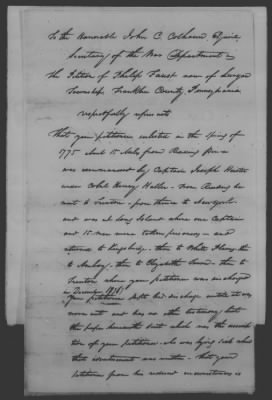 To the Honorable John C. Calhoun, Esquire
Secretary of the War Department
the Petition of Philip Faust now of Lurgan
Township Franklin County, Pennsylvania
respectfully represents
That your petitioner enlisted in the Spring of
1775 And from Reading
was commanded by Captain Joseph
under Col. Henry Haller. from Reading he
went to Trenton. from thence to Newyork
and was at long Island where our Captain
and 15 men were taken prisoners and
returned to Kingsbridge. then to White Plains, then
to Amboy. then to Elizabeth Town. then to
Trenton where your petitioner was discharged
in December 1776
your petitioner kept his discharge until it was
worn out and has no other testimony but
the paper herewith sent which was the
of your petitioner who was lying sick when
that was written. That your
petitioner from his reduced circumstances is